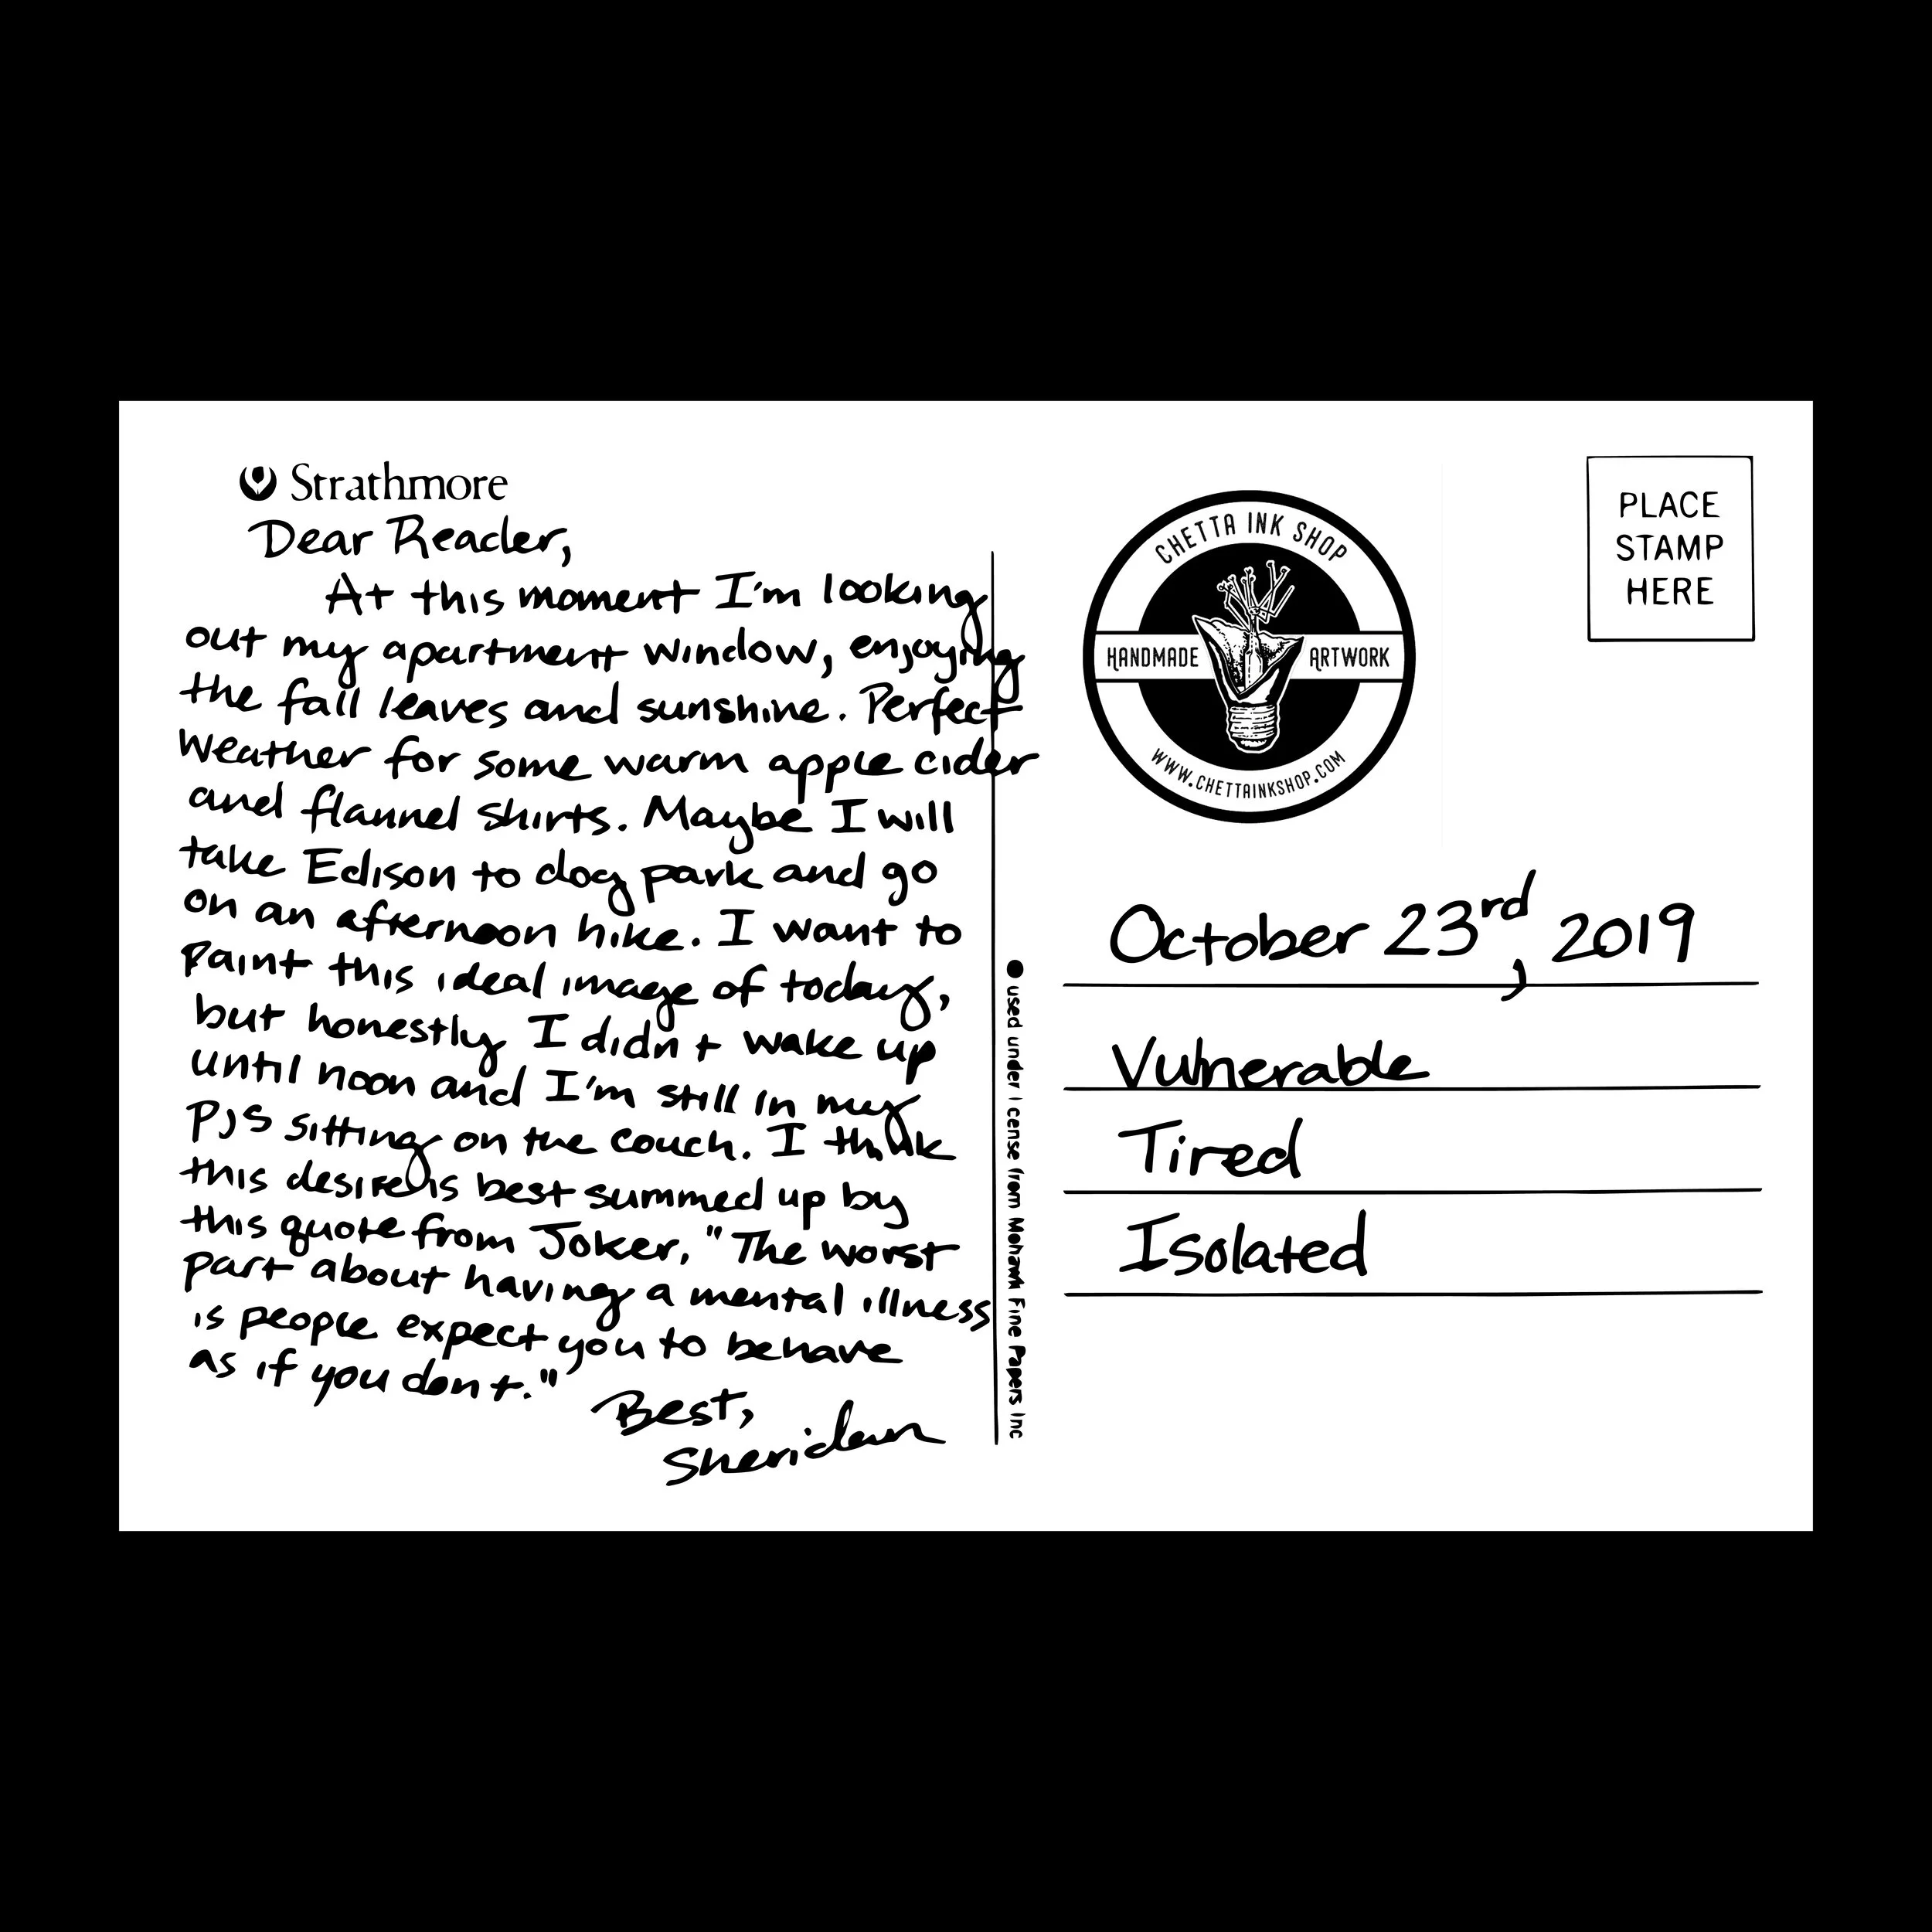 Strathmore
Dear Reader,
At this moment I'm looking
out my apartment window, enjoying
the fall leaves and sunshine. Perfect
weather for some warm apple cider
and flannel shirts. Maybe I will
take Edison to dog park and go
on an afternoon hike. I want to
paint this ideal image of today,
but honestly I didn't wake up
until noon and I'm still in my
PJs sitting on the couch. I think
this desire is best summed up by
this quote from Joker, "The worst
part about having a mental illness
is people expect you to behave
as if you don't."
Best,
Sheridan
used under license from Mohawk Fine Papers Inc
CHETTA INK SHOP
HANDMADE ARTWORK
WWW.CHETTAINKSHOP.COM
PLACE
STAMP
HERE
October 23rd, 2019
Vulnerable
Tired
Isolated